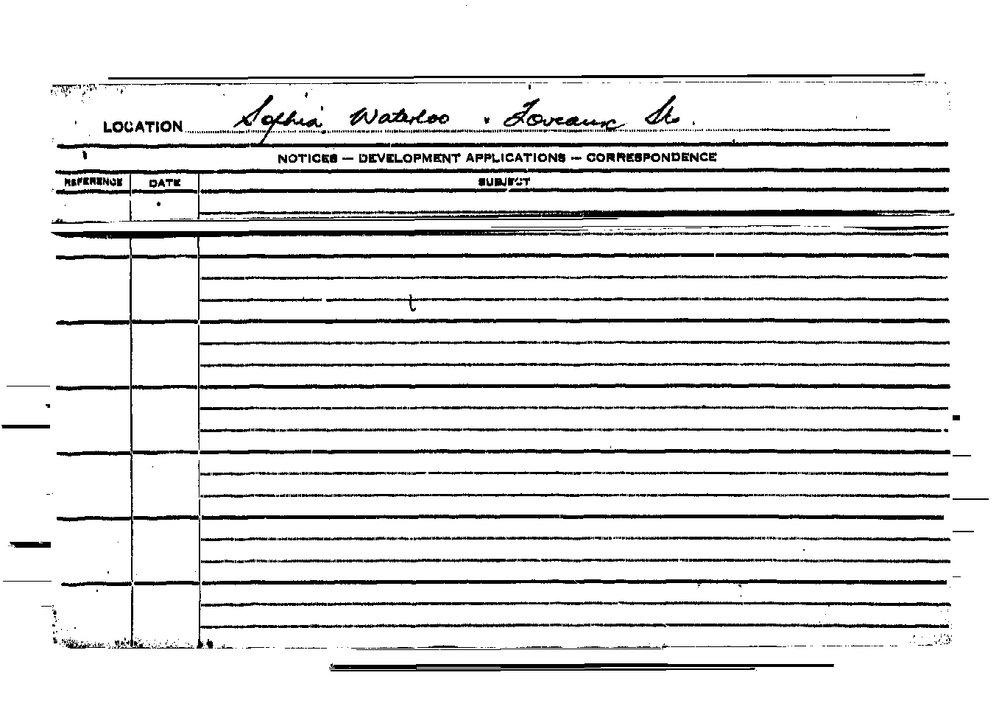 LOCATION Sophia Waterloo & Foveaux Sts.
NOTICES — DEVELOPMENT APPLICATIONS — CORRESPONDENCE
REFERENCE DATE SUBJECT